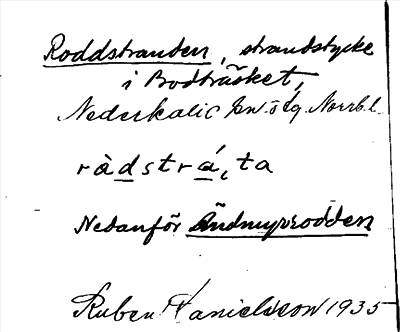 Roddstranden, strandstycke
i Bodträsket,
Nederkalix sn. Norrb.l.
rådstrá,ta
Nedanför Ändmyrrodden
Ruben Danielsson 1935